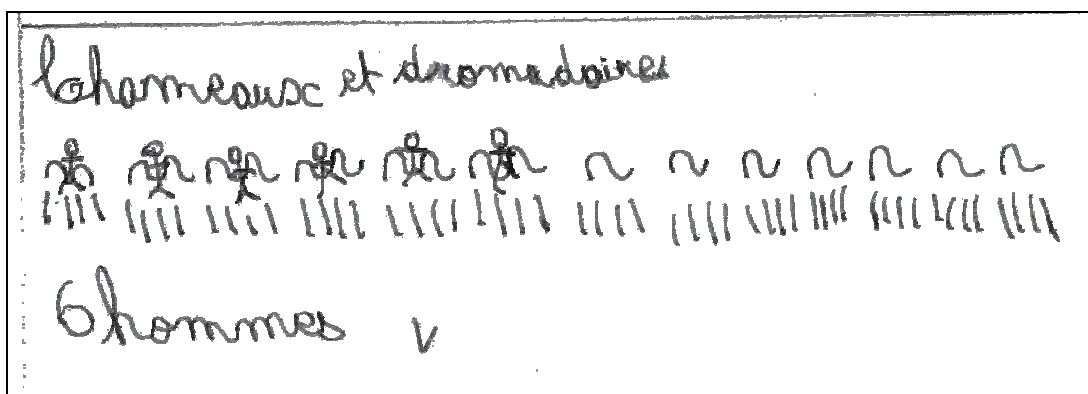 Chameaux et dromadaires
6 hommes v